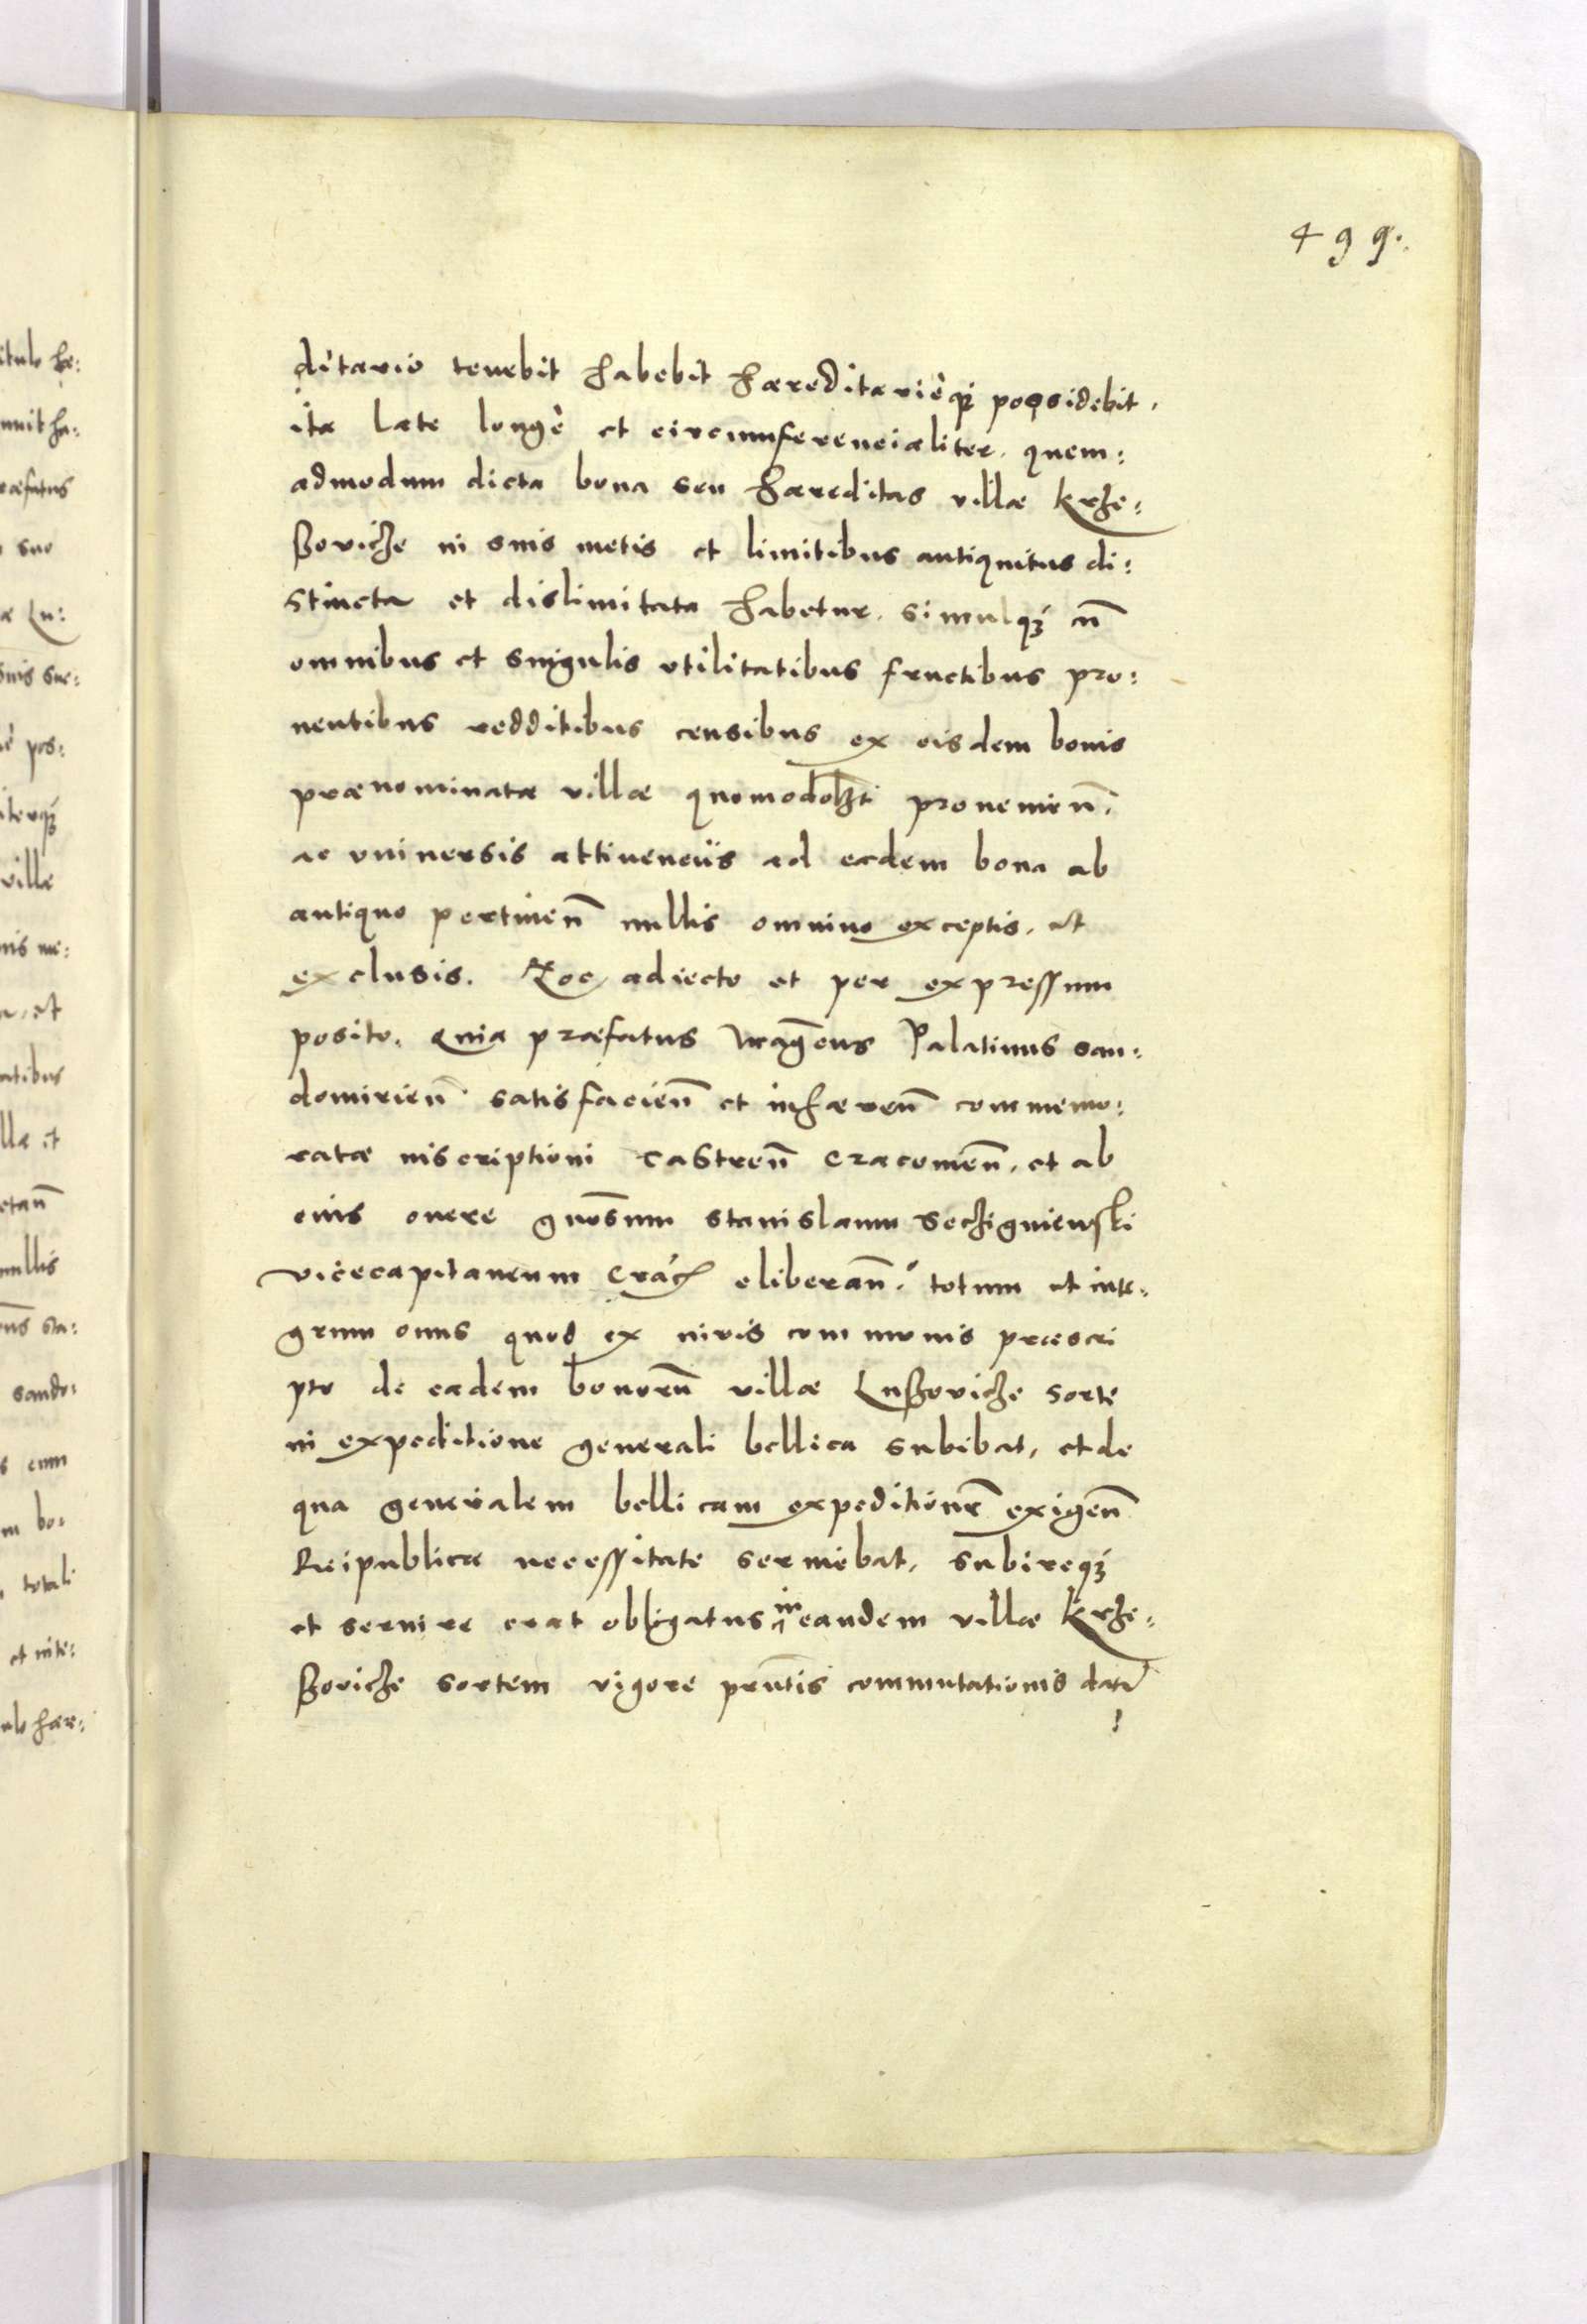 499.
ditario tenebit habebit haereditarièq; possidebit,
ita late longè et circumferencialiter, quem:
admodum dicta bona seu haereditas villae Krze:
ßoviche in suis metis et limitibus antiquitus di:
stincta et dislimitata habetur, simulq; cū
omnibus et singulis vtilitatibus fructibus pro:
uentibus redditibus censibus ex eisdem bonis
praenominatae villae quomodolzt prouenien̄.
ac vniuersis attinencijs ad eadem bona ab
antiquo pertinen̄ nullis omnino exceptis, et
exclusis. Hoc adiecto et per expressum
posito, Quia praefatus Mag̃cus Palatinus san:
domirien̄ satisfacien̄ et inhaeren̄ commemo:
ratae inscriptioni castren̄ Cracouien̄, et ab
eius onere gn̄osum Stanislaum Sechigniewski
vicecapitaneum Crac̄ eliberan̄. totum et inte:
grum onus quod ex iuris communis praescri
pto de eadem bonorū villae Lußoviche sorte
in expeditione generali bellica subibat, et de
qua generalem bellicam expeditionē exigen̄
Reipublicae necessitate seruiebat, subireq;
et seruire erat obligatus in eandem villae Krze:
ßoviche sortem vigore prn̄tis commutationis dat̄